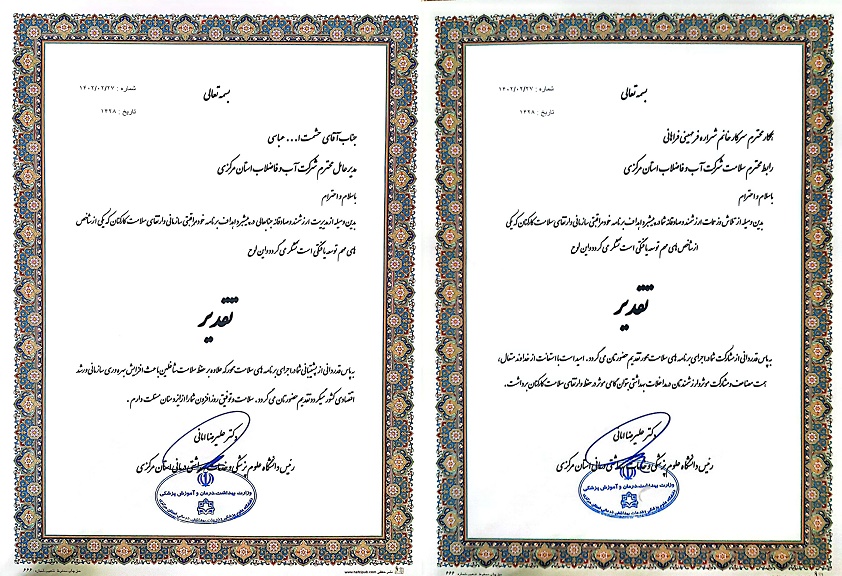 بسمه تعالی
شماره : ۱۴۰۲/۰۲/۲۷
تاریخ : ۱۴۲۸
همکار محترم سرکار خانم شراره فرمهینی فراهانی
رابط محترم سلامت شرکت آب و فاضلاب استان مرکزی
با سلام و احترام
بدین وسیله از تلاش و زحمات ارزشمند و صادقانه شما در پیشبرد اهداف برنامه خودمراقبتی سازمانی و ارتقای سلامت کارکنان که یکی
از شاخص های مهم توسعه یافتگی است تشکر می گردد و این لوح
تقدیر
به پاس قدردانی از مشارکت شما در اجرای برنامه های سلامت محور تقدیم حضورتان می گردد . امید است با استعانت از خداوند متعال ،
همت مضاعف و مشارکت موثر و ارزشمندتان در مداخلات بهداشتی بتوان گامی موثر در حفظ و ارتقای سلامت کارکنان برداشت.
دکتر علیرضا امانی
رئیس دانشگاه علوم پزشکی و خدمات بهداشتی درمانی استان مرکزی
وزارت بهداشت، درمان و آموزش پزشکی
بسمه تعالی
شماره : ۱۴۰۲/۰۲/۲۷
تاریخ : ۱۴۲۸
جناب آقای حشمت ا... عباسی
مدیرعامل محترم شرکت آب و فاضلاب استان مرکزی
با سلام و احترام
بدین وسیله از مدیریت ارزشمند و صادقانه جنابعالی در پیشبرد اهداف برنامه خودمراقبتی سازمانی و ارتقای سلامت کارکنان که یکی از شاخص
های مهم توسعه یافتگی است تشکر می گردد و این لوح
تقدیر
به پاس قدردانی از پشتیبانی شما در اجرای برنامه های سلامت محور که علاوه بر حفظ سلامت شاغلین باعث افزایش بهره وری سازمانی و رشد
اقتصادی کشور میگردد تقدیم حضورتان می گردد. سلامت و توفیق روز افزون شما را از ایزد منان مسئلت دارم .
دکتر علیرضا امانی
رئیس دانشگاه علوم پزشکی و خدمات بهداشتی درمانی استان مرکزی
وزارت بهداشت، درمان و آموزش پزشکی